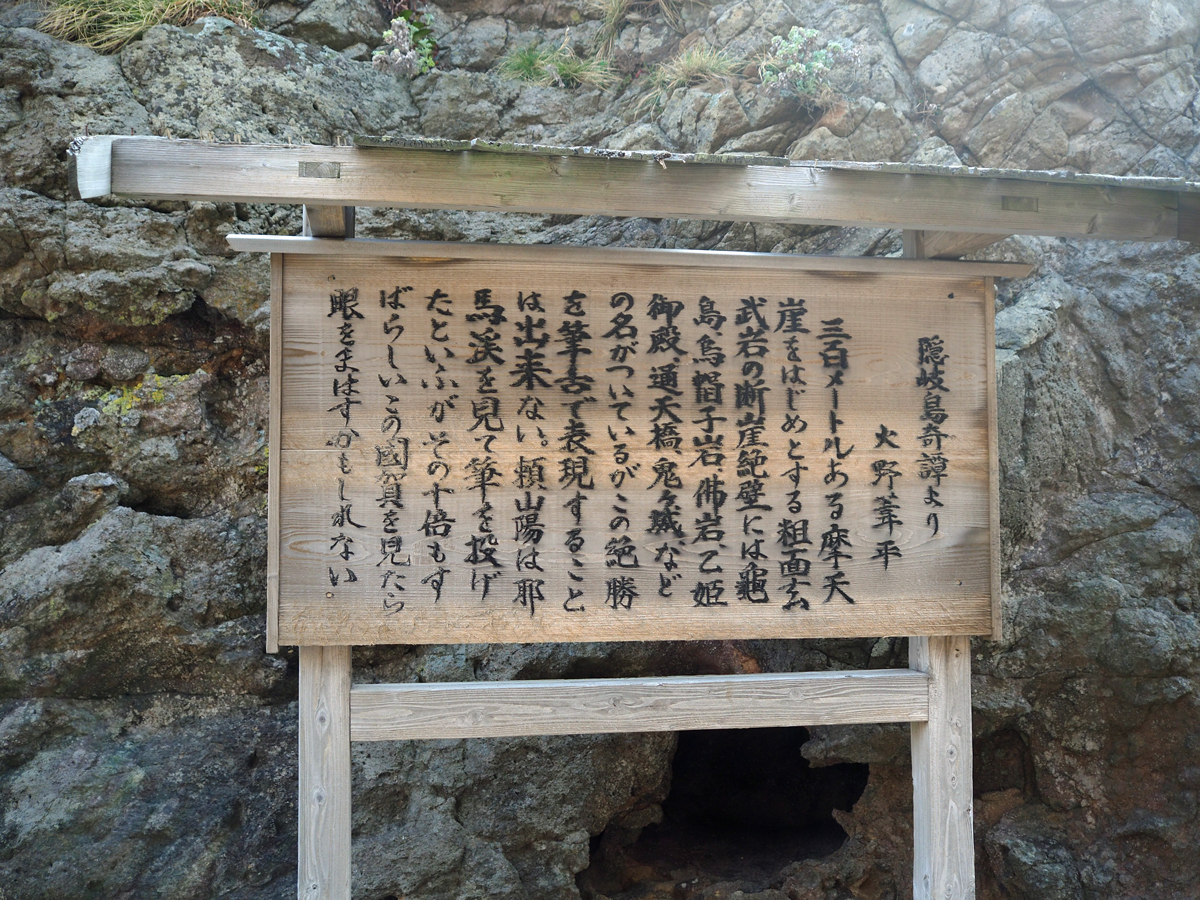 隠岐島奇譚より
火野葦平
三百メートルある摩天
崖をはじめとする粗面玄
武岩の断崖絶壁には亀
島、烏帽子岩、佛岩、乙姫
御殿、通天橋、鬼ヶ城、など
の名がついているがこの絶勝
を筆舌で表現すること
は出来ない。頼山陽は耶
馬渓を見て筆を投げ
たといふがその十倍もす
ばらしいこの國賀を見たら
眼をまはすかもしれない